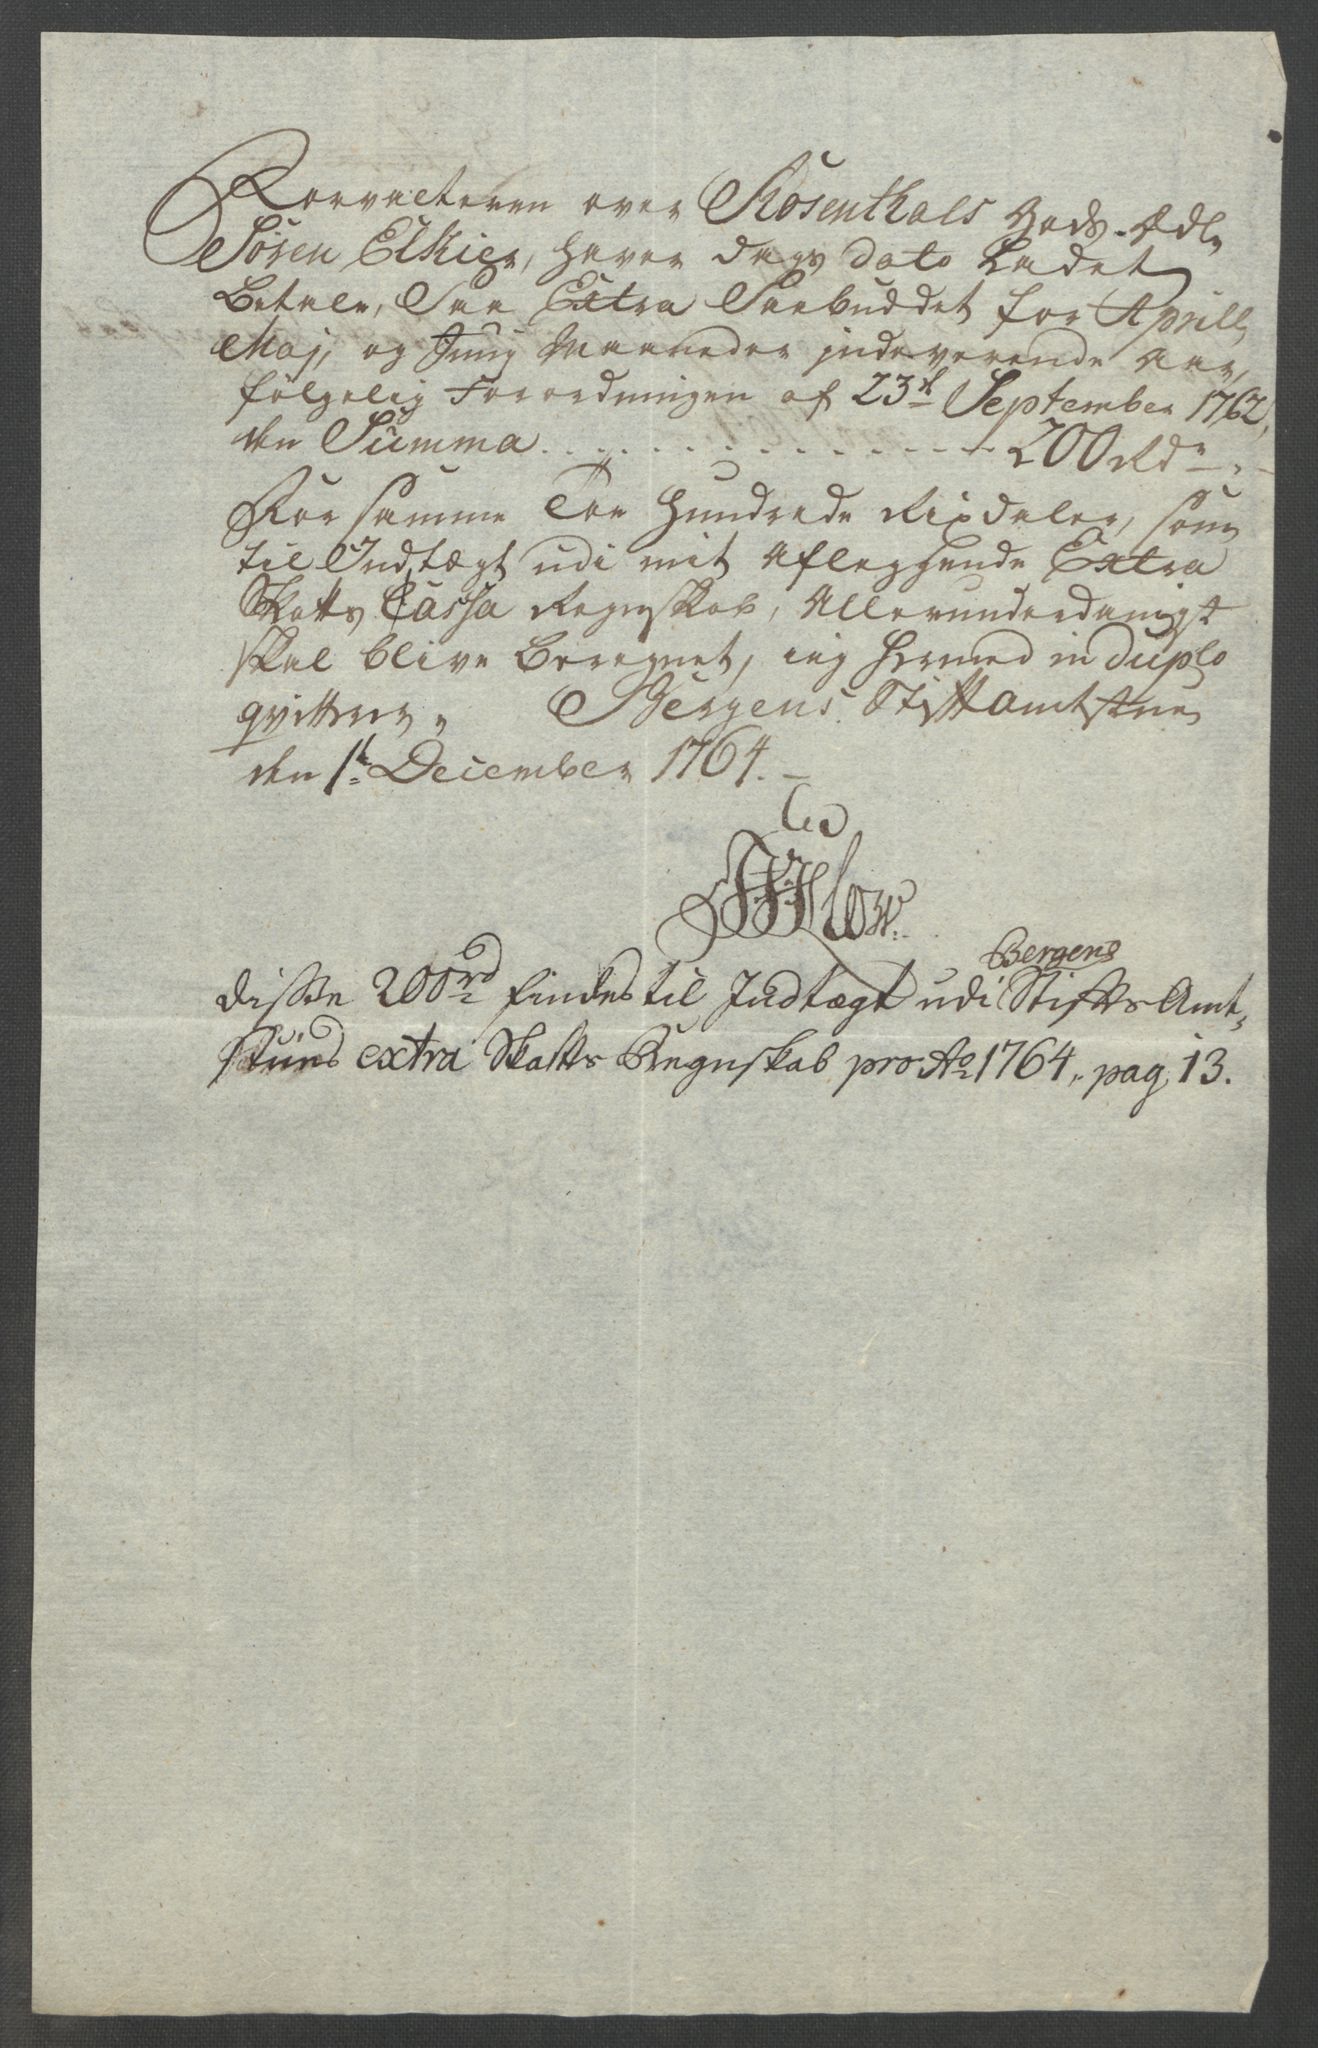 Forvalteren over Rosenthals Gods Ædle
Sören Elkier, haver dags dato Ladet
Betale, Paa Extra Paabuddet for Aprill,
Maj, og Junij Maaneder indeværende Aar,
følgelig Forordningen af 23de September 1762,
den Summa . . . . . . . . . . . . . 200 Rdr
For samme Toe Hundrede Rixdaler, som
til Indtægt udi mit Aflæggende Extra
Skatts Cassa Regnskab, Allerunderdanigst
skal blive Beregnet, ieg hermed in duplo
qvitterer. Bergens Stiftamtstue
den 1te December 1764.
disse 200 rdr findes til Indtægt udi Bergens Stifts Amt-
stues extra Skatts Regnskab pro Ao 1764, pag. 13.